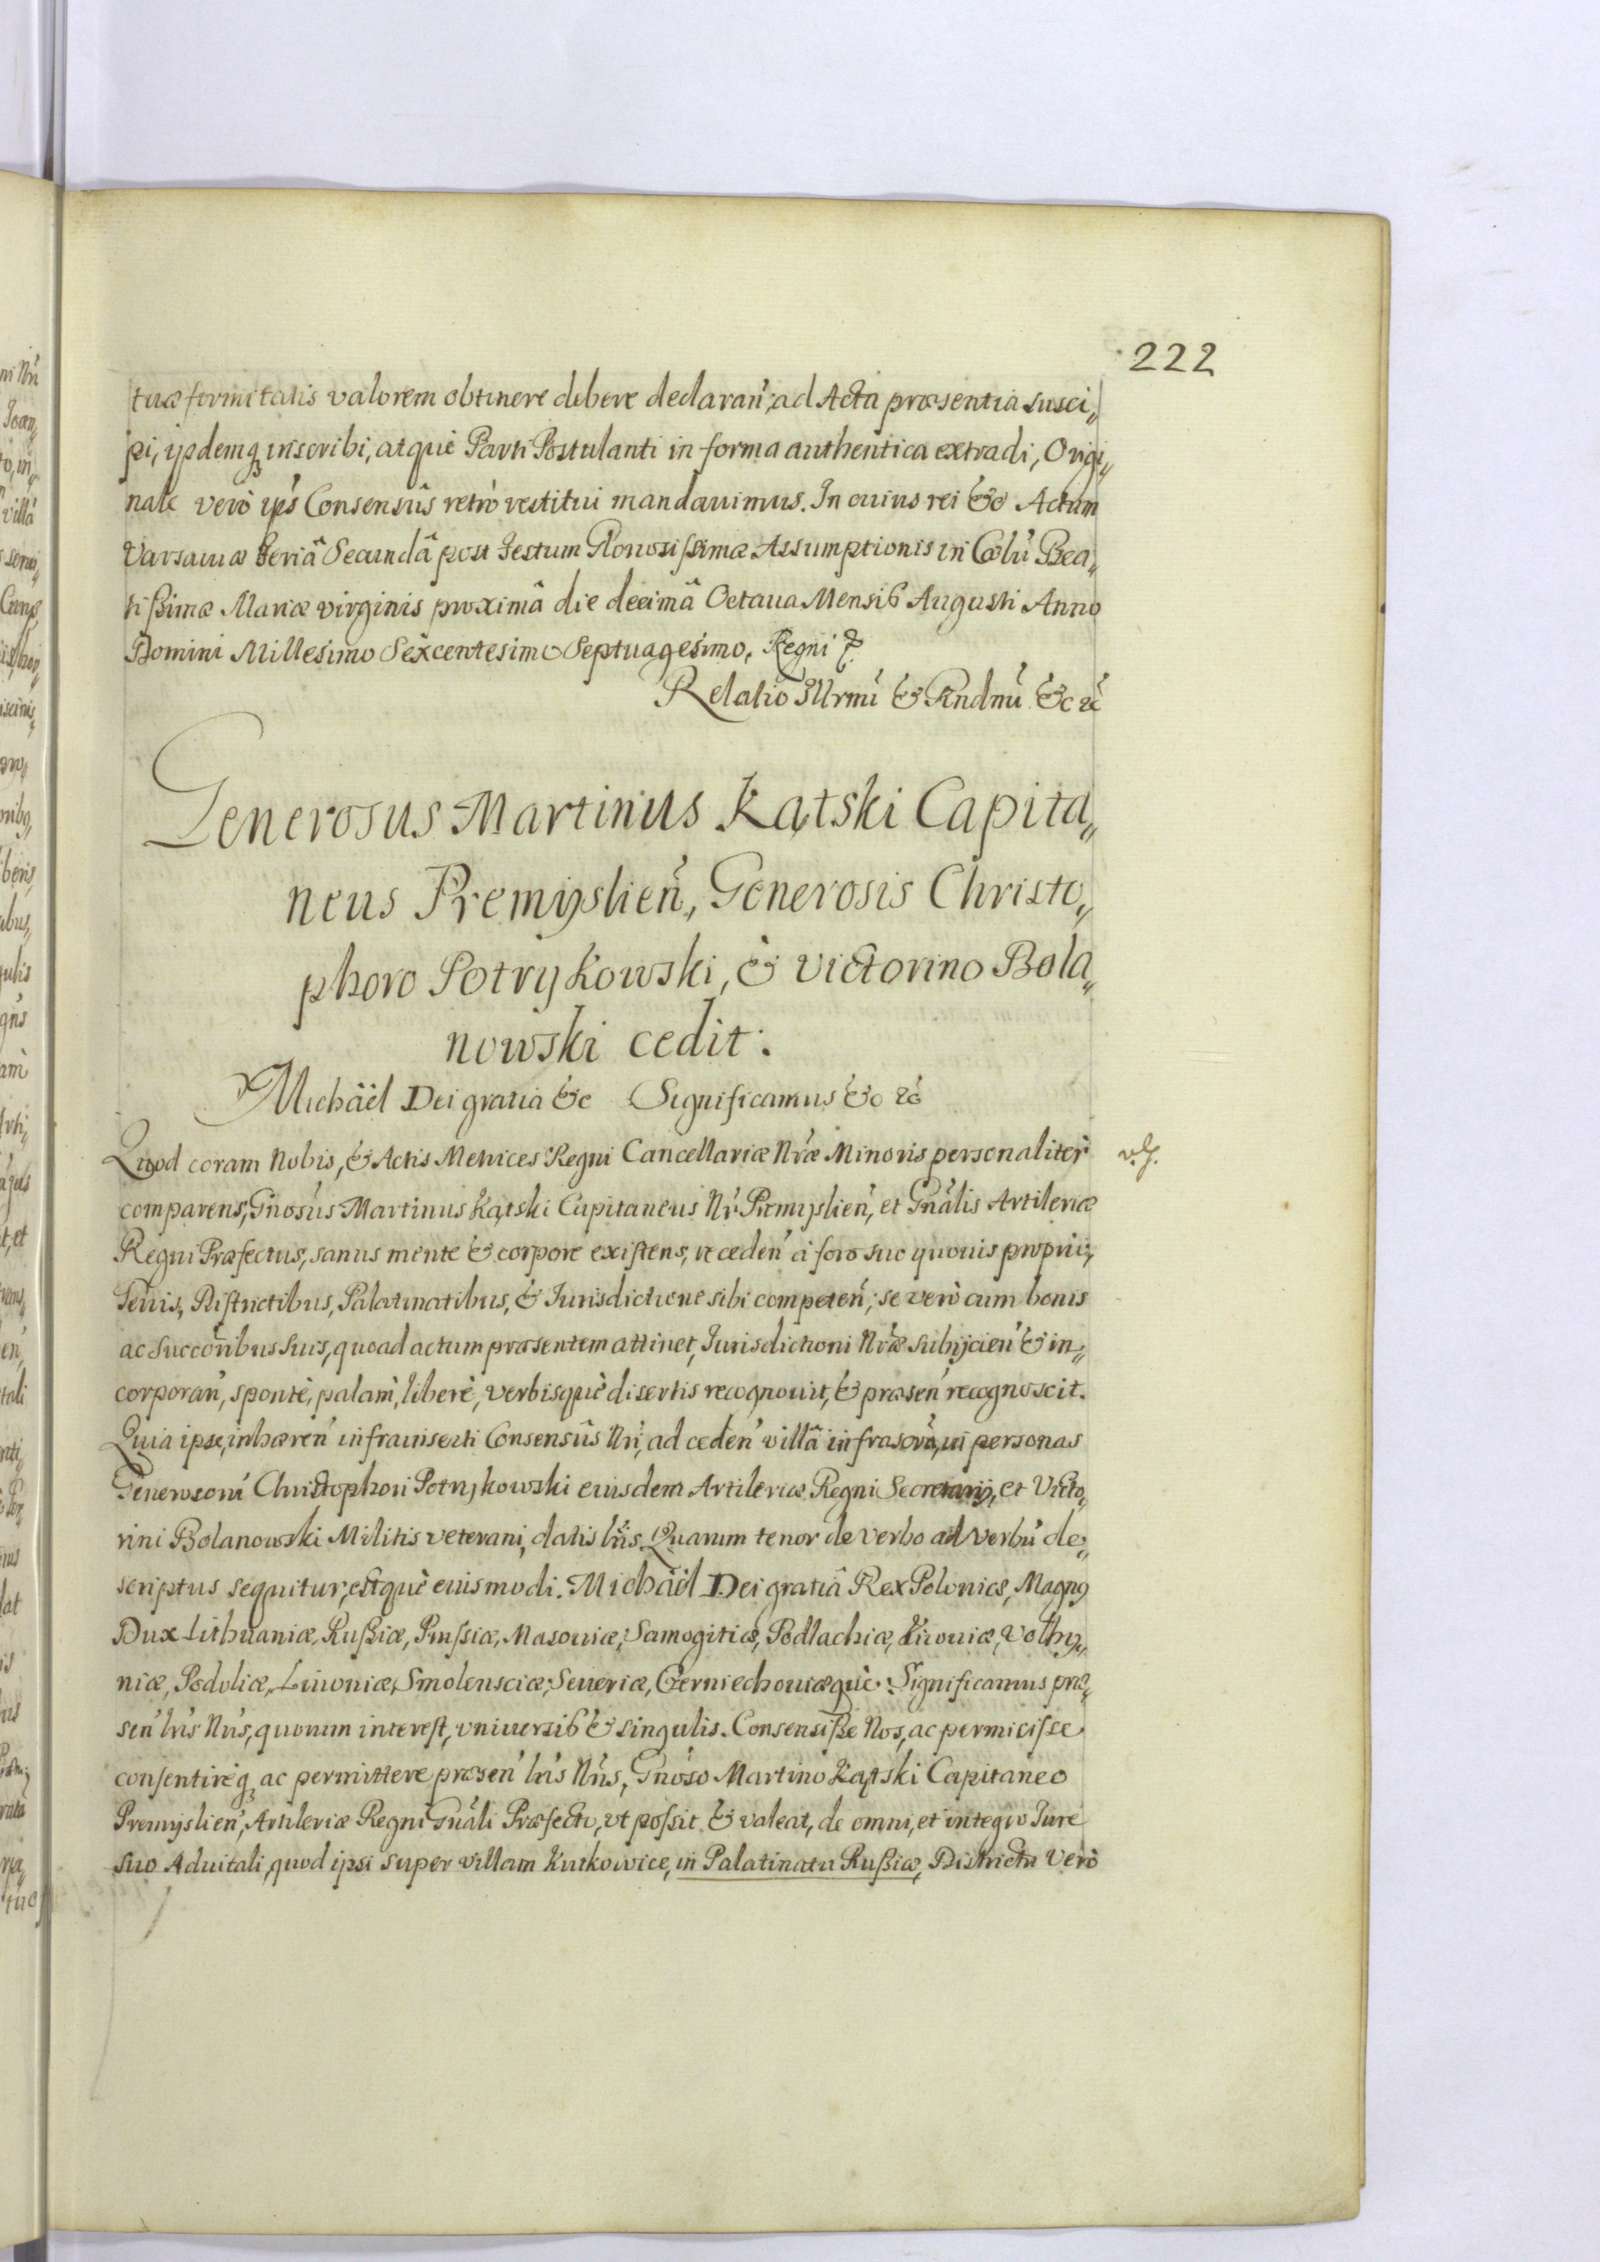 222
tuæ firmitatis valorem obtinere debere declarań, ad Acta præsentia susci„
pi, ijsdemq́ inscribi, atquè Parti Postulanti in forma authentica extradi, Origi„
nale verò ip̄s Consensûs retrò restitui mandauimus. In cuius rei &c Actum
Varsauiæ Feriâ Secundâ post Festum Gloriosissimæ Assumptionis in Cœlū Bea„
tissimæ Mariæ virginis proximâ die decimâ Octaua Mensis Augusti Anno
Domini Millesimo Sexcentesimo Septuagesimo, Regni &.
Relatio Illrmi & Rndmi &c &c
Generosus Martinus Kątski Capita„
neus Premijslień, Generosis Christo„
phoro Potrijkowski, & Victorino Bola„
nowski cedit.
Michäel Dei gratia &c Significamus &c &c
Quod coram Nobis, & Actis Metrices Regni Cancellariæ Nræ Minoris personalitèr
comparens, Gnosus Martinus Kątski Capitaneus Nr Præmyslień, et Gnâlis Artileriæ
Regni Præfectus, sanus mente & corpore existens, receden̄ à foro suo quouis proprio,
Terris, Districtibus, Palatinatibus, & Iurisdictione sibi competeń; se verò cum bonis
ac Succoribus suis, quoad actum præsentem attinet, Iurisdictioni Nræ subijcień & in„
corporań, spontè, palam, liberè, verbisquè disertis recognouit, & præseń recognoscit.
Quia ipse, inhæreń infrainserti Consensûs Nri, ad cedeń villâ infrascrā, in personas
Generosorū Christophori Potrijkowski eiusdem Artileriæ Regni Secretarij, et Victo„
rini Bolanowski Militis veterani, datis lris. Quarum tenor de verbo ad verbū de„
scriptus sequitur, estquè eiusmodi. Michäel Dei gratiâ Rex Poloniæ, Magnus
Dux Lithuaniæ, Russiæ, Prussiæ, Masouiæ, Samogitiæ, Podlachiæ, Kiiouiæ, Volhy„
niæ, Podoliæ, Liuoniæ, Smolensciæ, Seueriæ, Czerniechouiæquè. Significamus præ„
seń lris Nris, quorum interest, vniuersis & singulis. Consensisse Nos, ac permicisse
consentireq́ ac permittere præseń lris Nris, Gnoso Martino Kątski Capitaneo
Premyslień, Artileriæ Regni Gnâli Præfecto, vt possit & valeat, de omni, et integro Iure
suo Aduitali, quod ipsi super villam Kutkowice, in Palatinatu Russiæ, Districtu verò